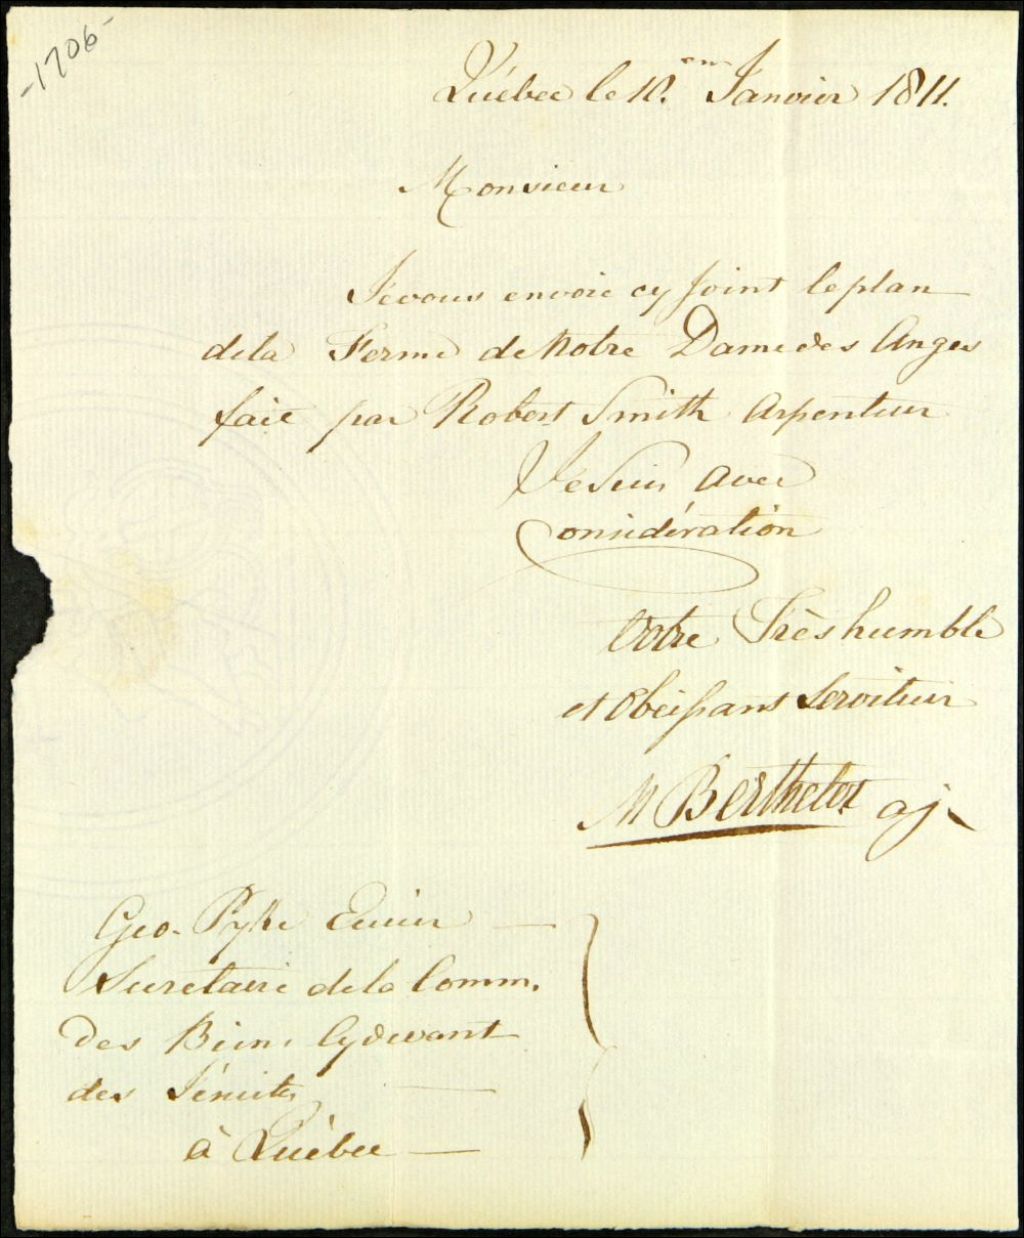 -1706-
Québec le 10.em Janvier 1811.
Monsieur
Je vous envoie cy Joint le plan
de la Ferme de Notre Dame des Anges
fait par Robert Smith Arpenteur
Je suis avec
Considération
Votre Très humble
et Obeissans Serviteur
M Berthelot aj
Geo. Pyke Ecuier
Secretaire de la Comm.
des Biens Cydevant
des Jésuites
à Québec